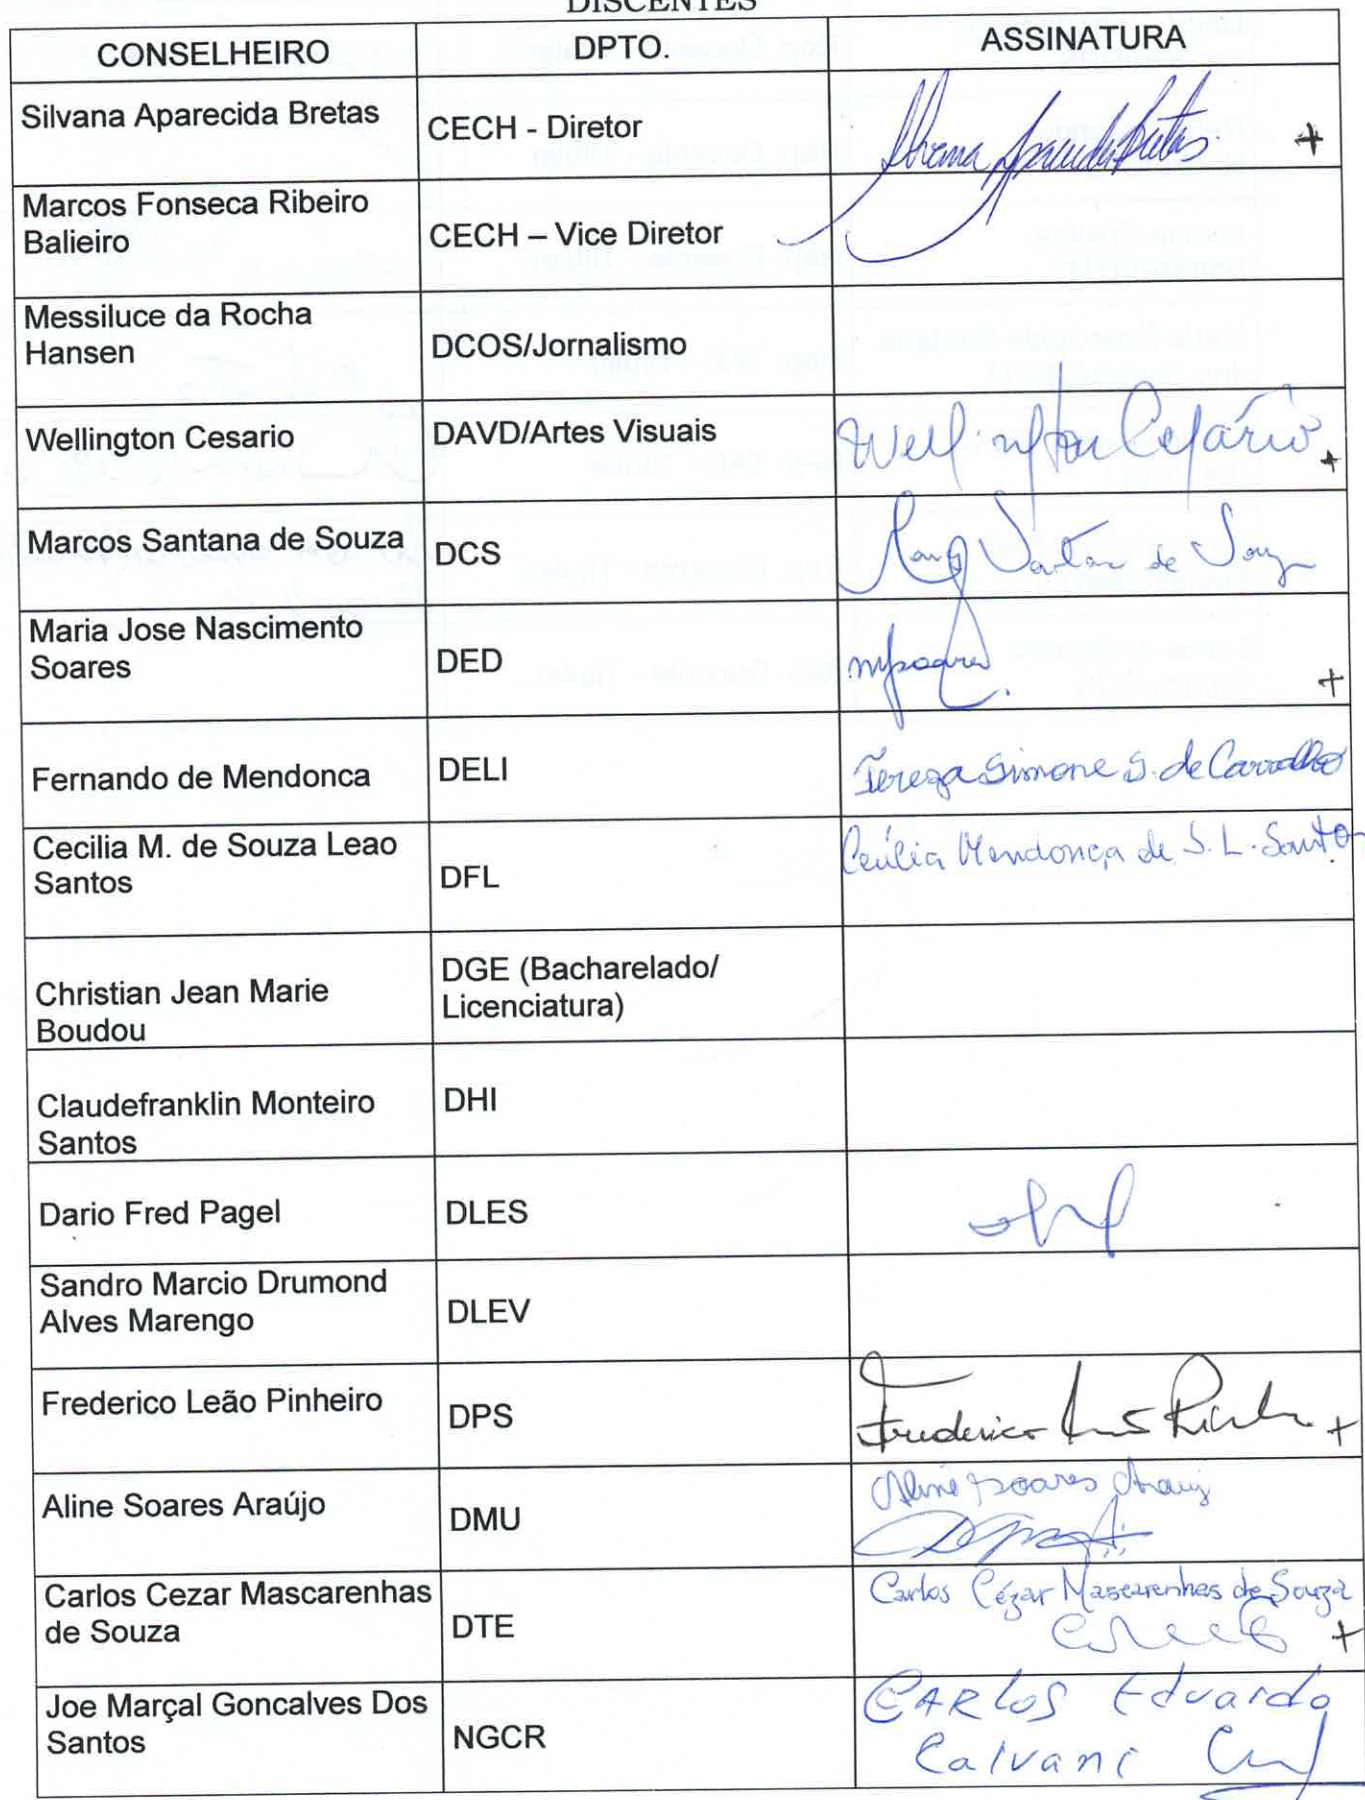 DISCENTES
CONSELHEIRO DPTO. ASSINATURA
Silvana Aparecida Bretas CECH - Diretor
Marcos Fonseca Ribeiro
Balieiro
CECH – Vice Diretor
Messiluce da Rocha
Hansen
DCOS/Jornalismo
Wellington Cesario DAVD/Artes Visuais Wellington Cesário
Marcos Santana de Souza DCS
Maria Jose Nascimento
Soares
DED mjsoares
Fernando de Mendonca DELI Tereza Simone S. de Carvalho
Cecilia M. de Souza Leao
Santos
DFL Cecília Mendonça de S. L. Santos
Christian Jean Marie
Boudou
DGE (Bacharelado/
Licenciatura)
Claudefranklin Monteiro
Santos
DHI
Dario Fred Pagel DLES
Sandro Marcio Drumond
Alves Marengo
DLEV
Frederico Leão Pinheiro DPS Frederico
Aline Soares Araújo DMU Aline Soares Araujo
Carlos Cezar Mascarenhas
de Souza
DTE Carlos Cézar Mascarenhas de Souza
Joe Marçal Goncalves Dos
Santos
NGCR CARLOS Eduardo
Calvani